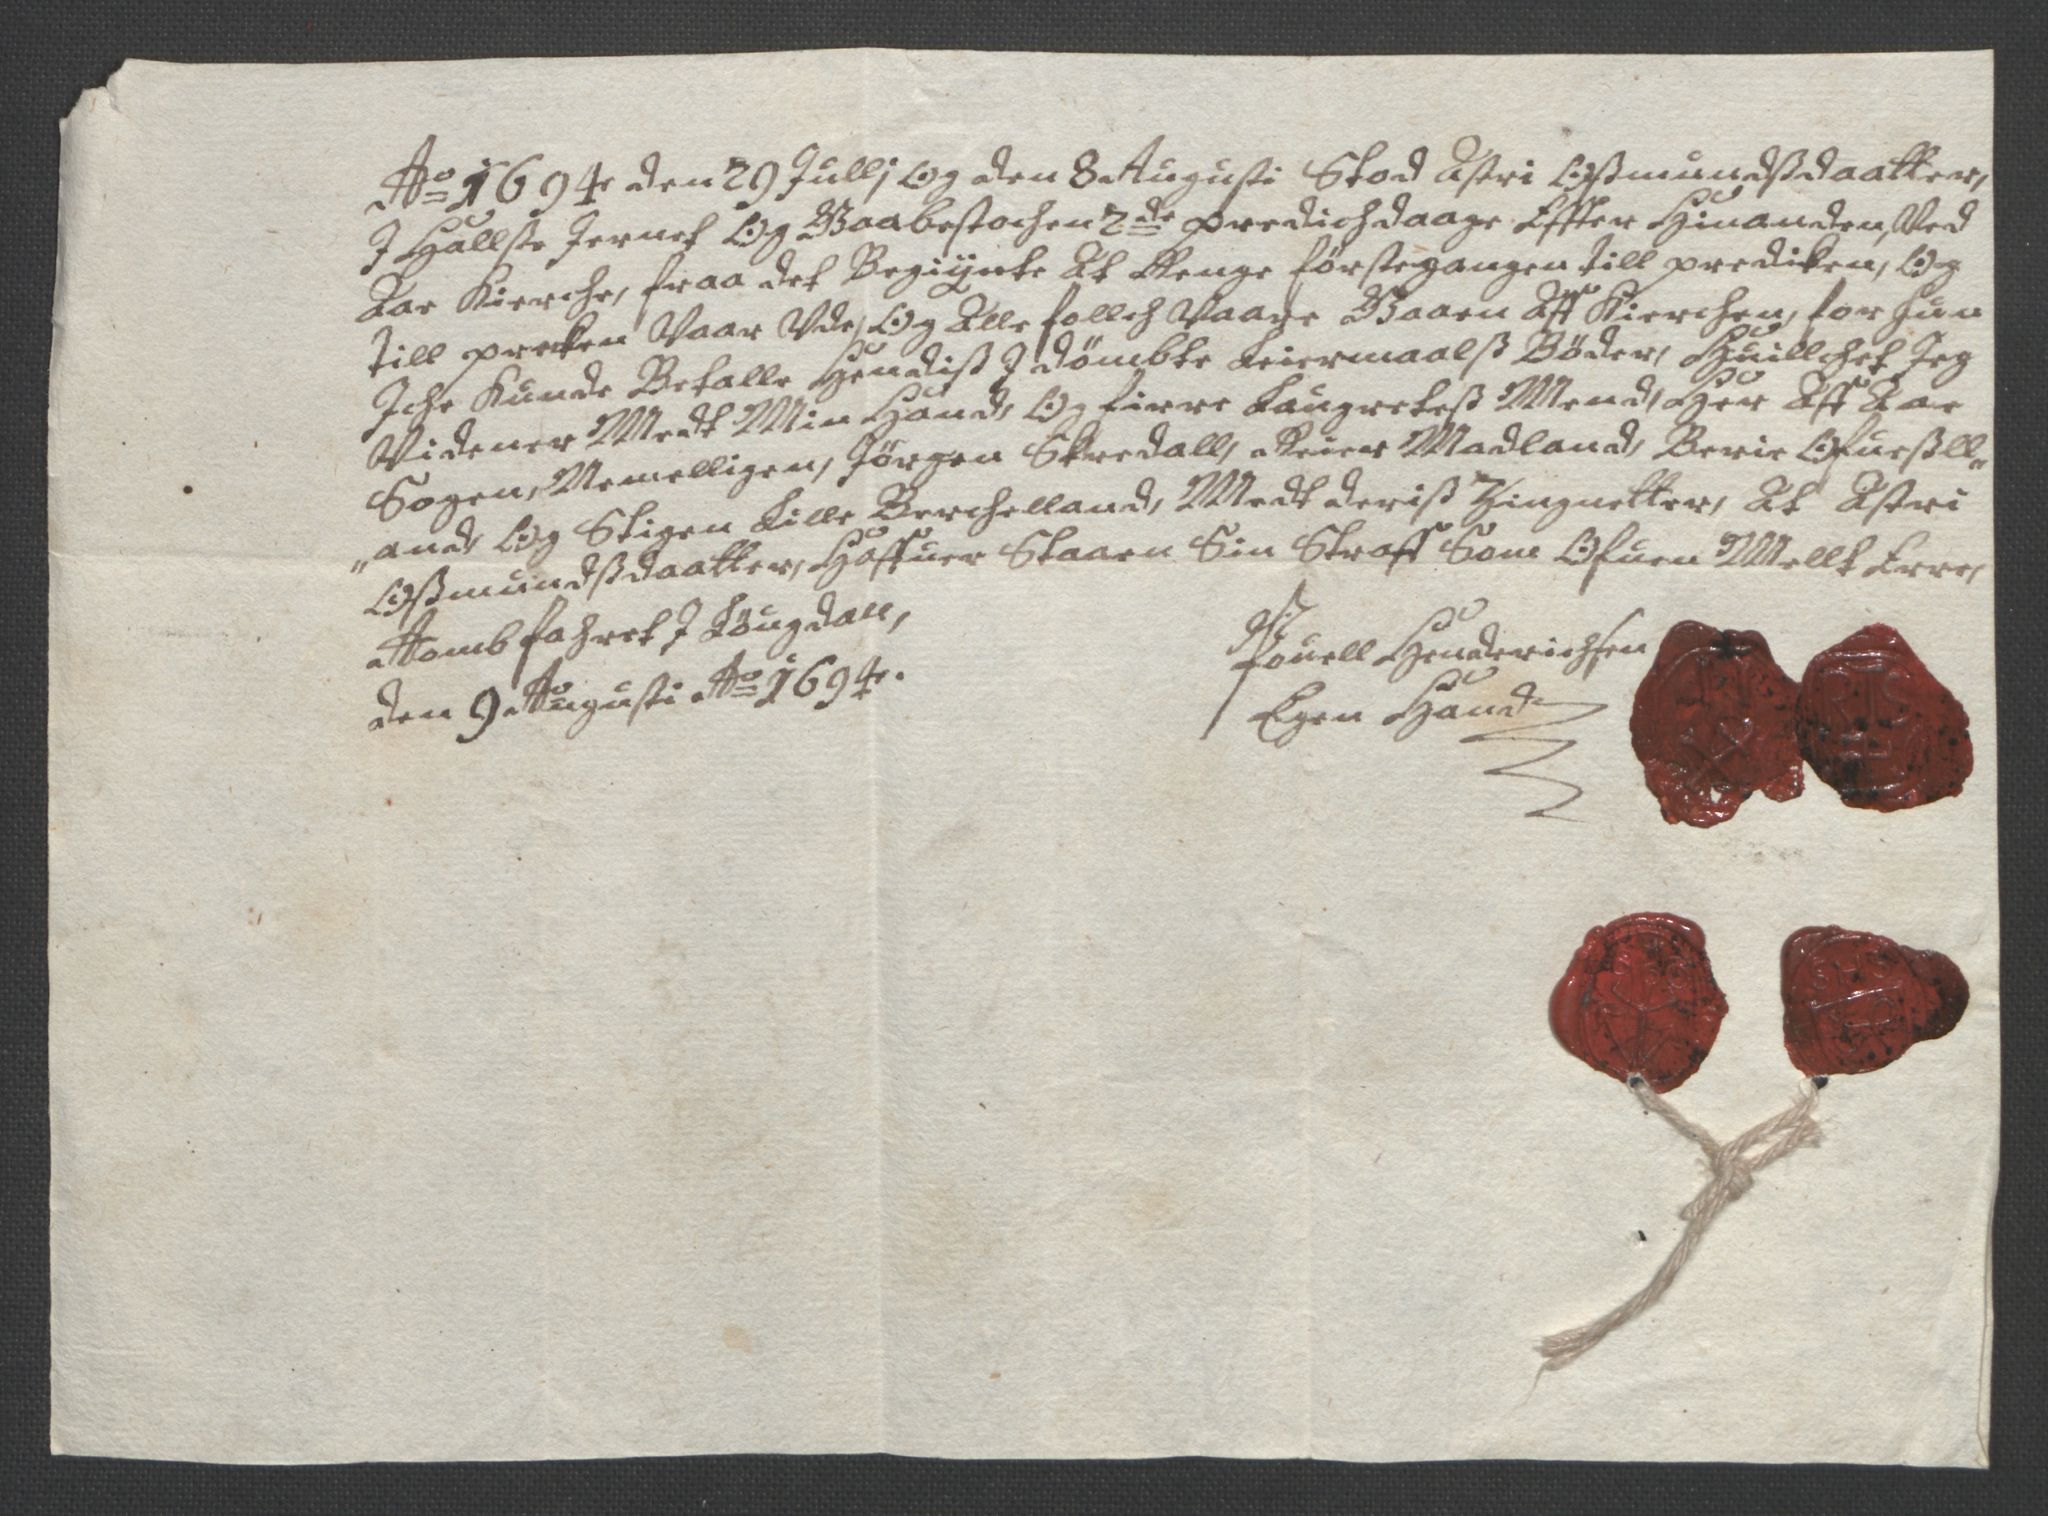 Ao 1694 den 29 Jullj og den 8 Augusti Stod Astri Oßmundsdaatter,
J Halls Jernet Og Gaabestochen 2de predichdaage Effter Hinanden, Ved
Aae Kierche, fraa det Begÿnte At Renge förstegangen till prediken, Og
till precken Vaar Vde, Og Alle follch Vaare Gaaen Aff Kierchen, for hun
Iche Kunde Betalle Hendiß J dömbte Leiermaalß Böder, Huillchet Jeg
Vidner Medt Min Hand, Og fierre Laugretteß Mend, Her Aff Aae
Sogen, Nemelligen, Jörgen Skredall, Reier Madland, Berie Ofueßll„
„and, Og Stigen Lille Berchelland, Medt deriß Zingnetter, At Astri
Oßmundsdaatter, Haffuer Staaen Sin Straff Som Ofuen Mellt Erre,
Aomb fahret J Löugdall,
den 9 Augusti Ao 1694.
Pouell Henderichsen
Egen Hand